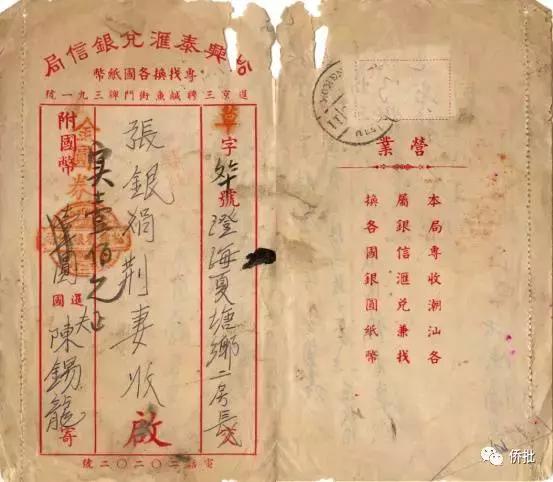 興泰滙兌銀信局
專找換各國紙幣
暹京三聘鹹魚街門牌三九一號
草字號澄海夏塘鄉二房長交
張銀荊妻收啟
附國幣金圓券壹佰元圓
暹國夫陳錫龍寄
電話二〇二〇二號
營業
本局專收潮汕各
屬銀信滙兌兼找
換各國銀圓紙幣
侨批